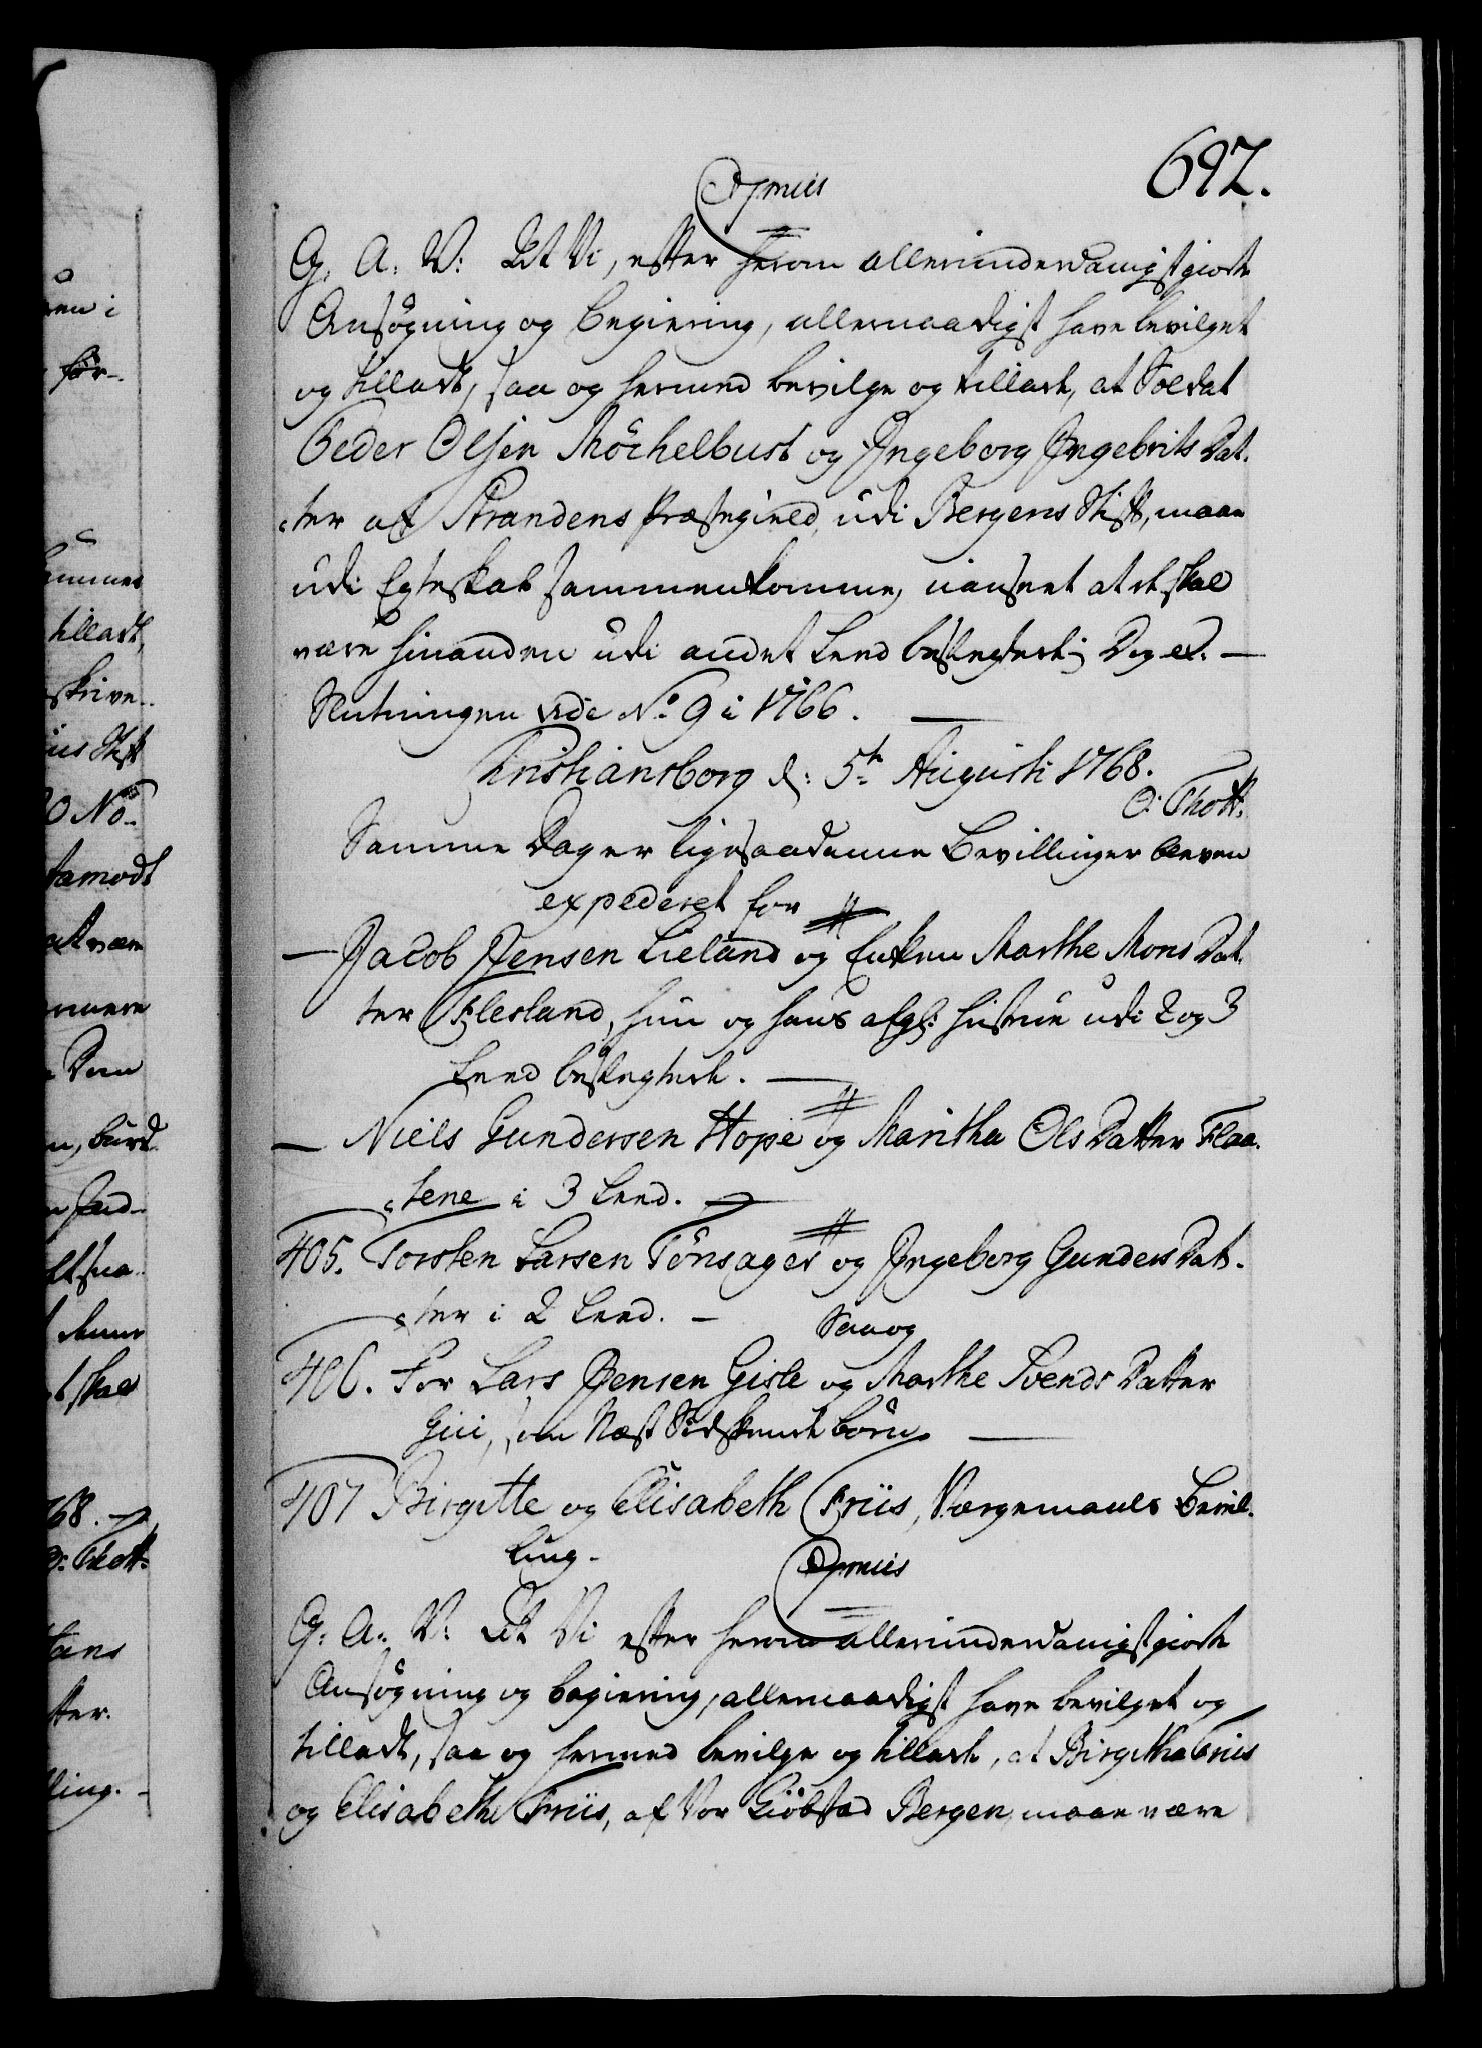 692.
Gratis
G: A: V: at Vi, efter herom allerunderdanigst giorte
Ansøgning og begiering, allernaadigst have bevilget
og tilladt, saa og hermed bevilge og tillade, at Soldat
Peder Olsen Möchelbust og Ingeborg Ingebrits Dat-
ter af Strandens Præstegield, udi Bergens Stift, maae
udi Egteskab sammenkomme, uanseet at de skal
være hinanden udi andet Leed beslegtede; Dog etc. —
Slutningen vide No. 9 i 1766. —
Christiansborg d: 5te Augusti 1768.
O: Thott.
Samme Dag er ligesaadanne Bevillinger bleven
expederet for
— Jacob Jensen Lieland og Enken Marthe Mons Dat-
ter Flesland, hun og hans afgl: Hustrue udi 2 og 3
Leed beslegtede. —
— Niels Gundersen Hope og Maritha Ols Datter Flaa-
tene i 3 Leed.
405. Torsten Larsen Tönsager og Ingeborg Gunders Dat-
ter i 2 Leed. —
Saa og
406. For Lars Jensen Gisle og Marthe Svends Datter
Giii, som Næst Sødskende børn —
407 Birgitte og Elisabeth Friis, Værgemaals Bevil-
ling.
Gratis
G: A: V: at Vi efter herom allerunderdanigst giorte
Ansøgning og begiering, allernaadigst have bevilget og
tilladt, saa og hermed bevilge og tillade, at Birgitha Friis
og Elisabethe Friis, af Vor Kiöbstad Bergen, maae være